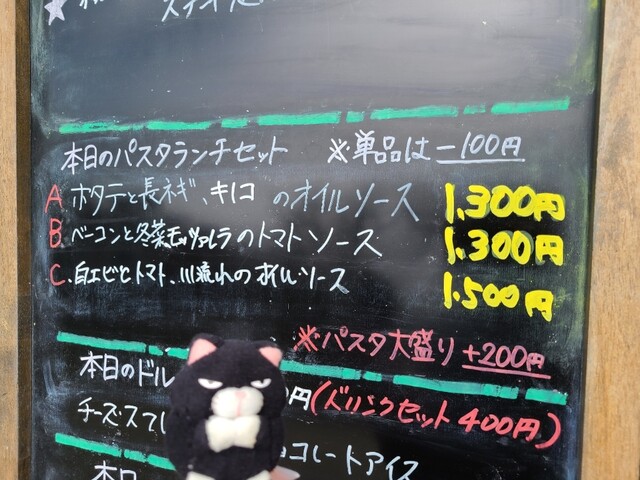 本日のパスタランチセット ※単品は-100円
A ホタテと長ネギ、キノコのオイルソース 1.300円
B. ベーコンと冬菜モッツァレラのトマトソース 1.300円
C. 白エビとトマト、川流れのオイルソース 1.500円
※パスタ大盛り +200円
本日のドル 円(ドリンクセット400円)
チーズスフレ コレートアイス
本日